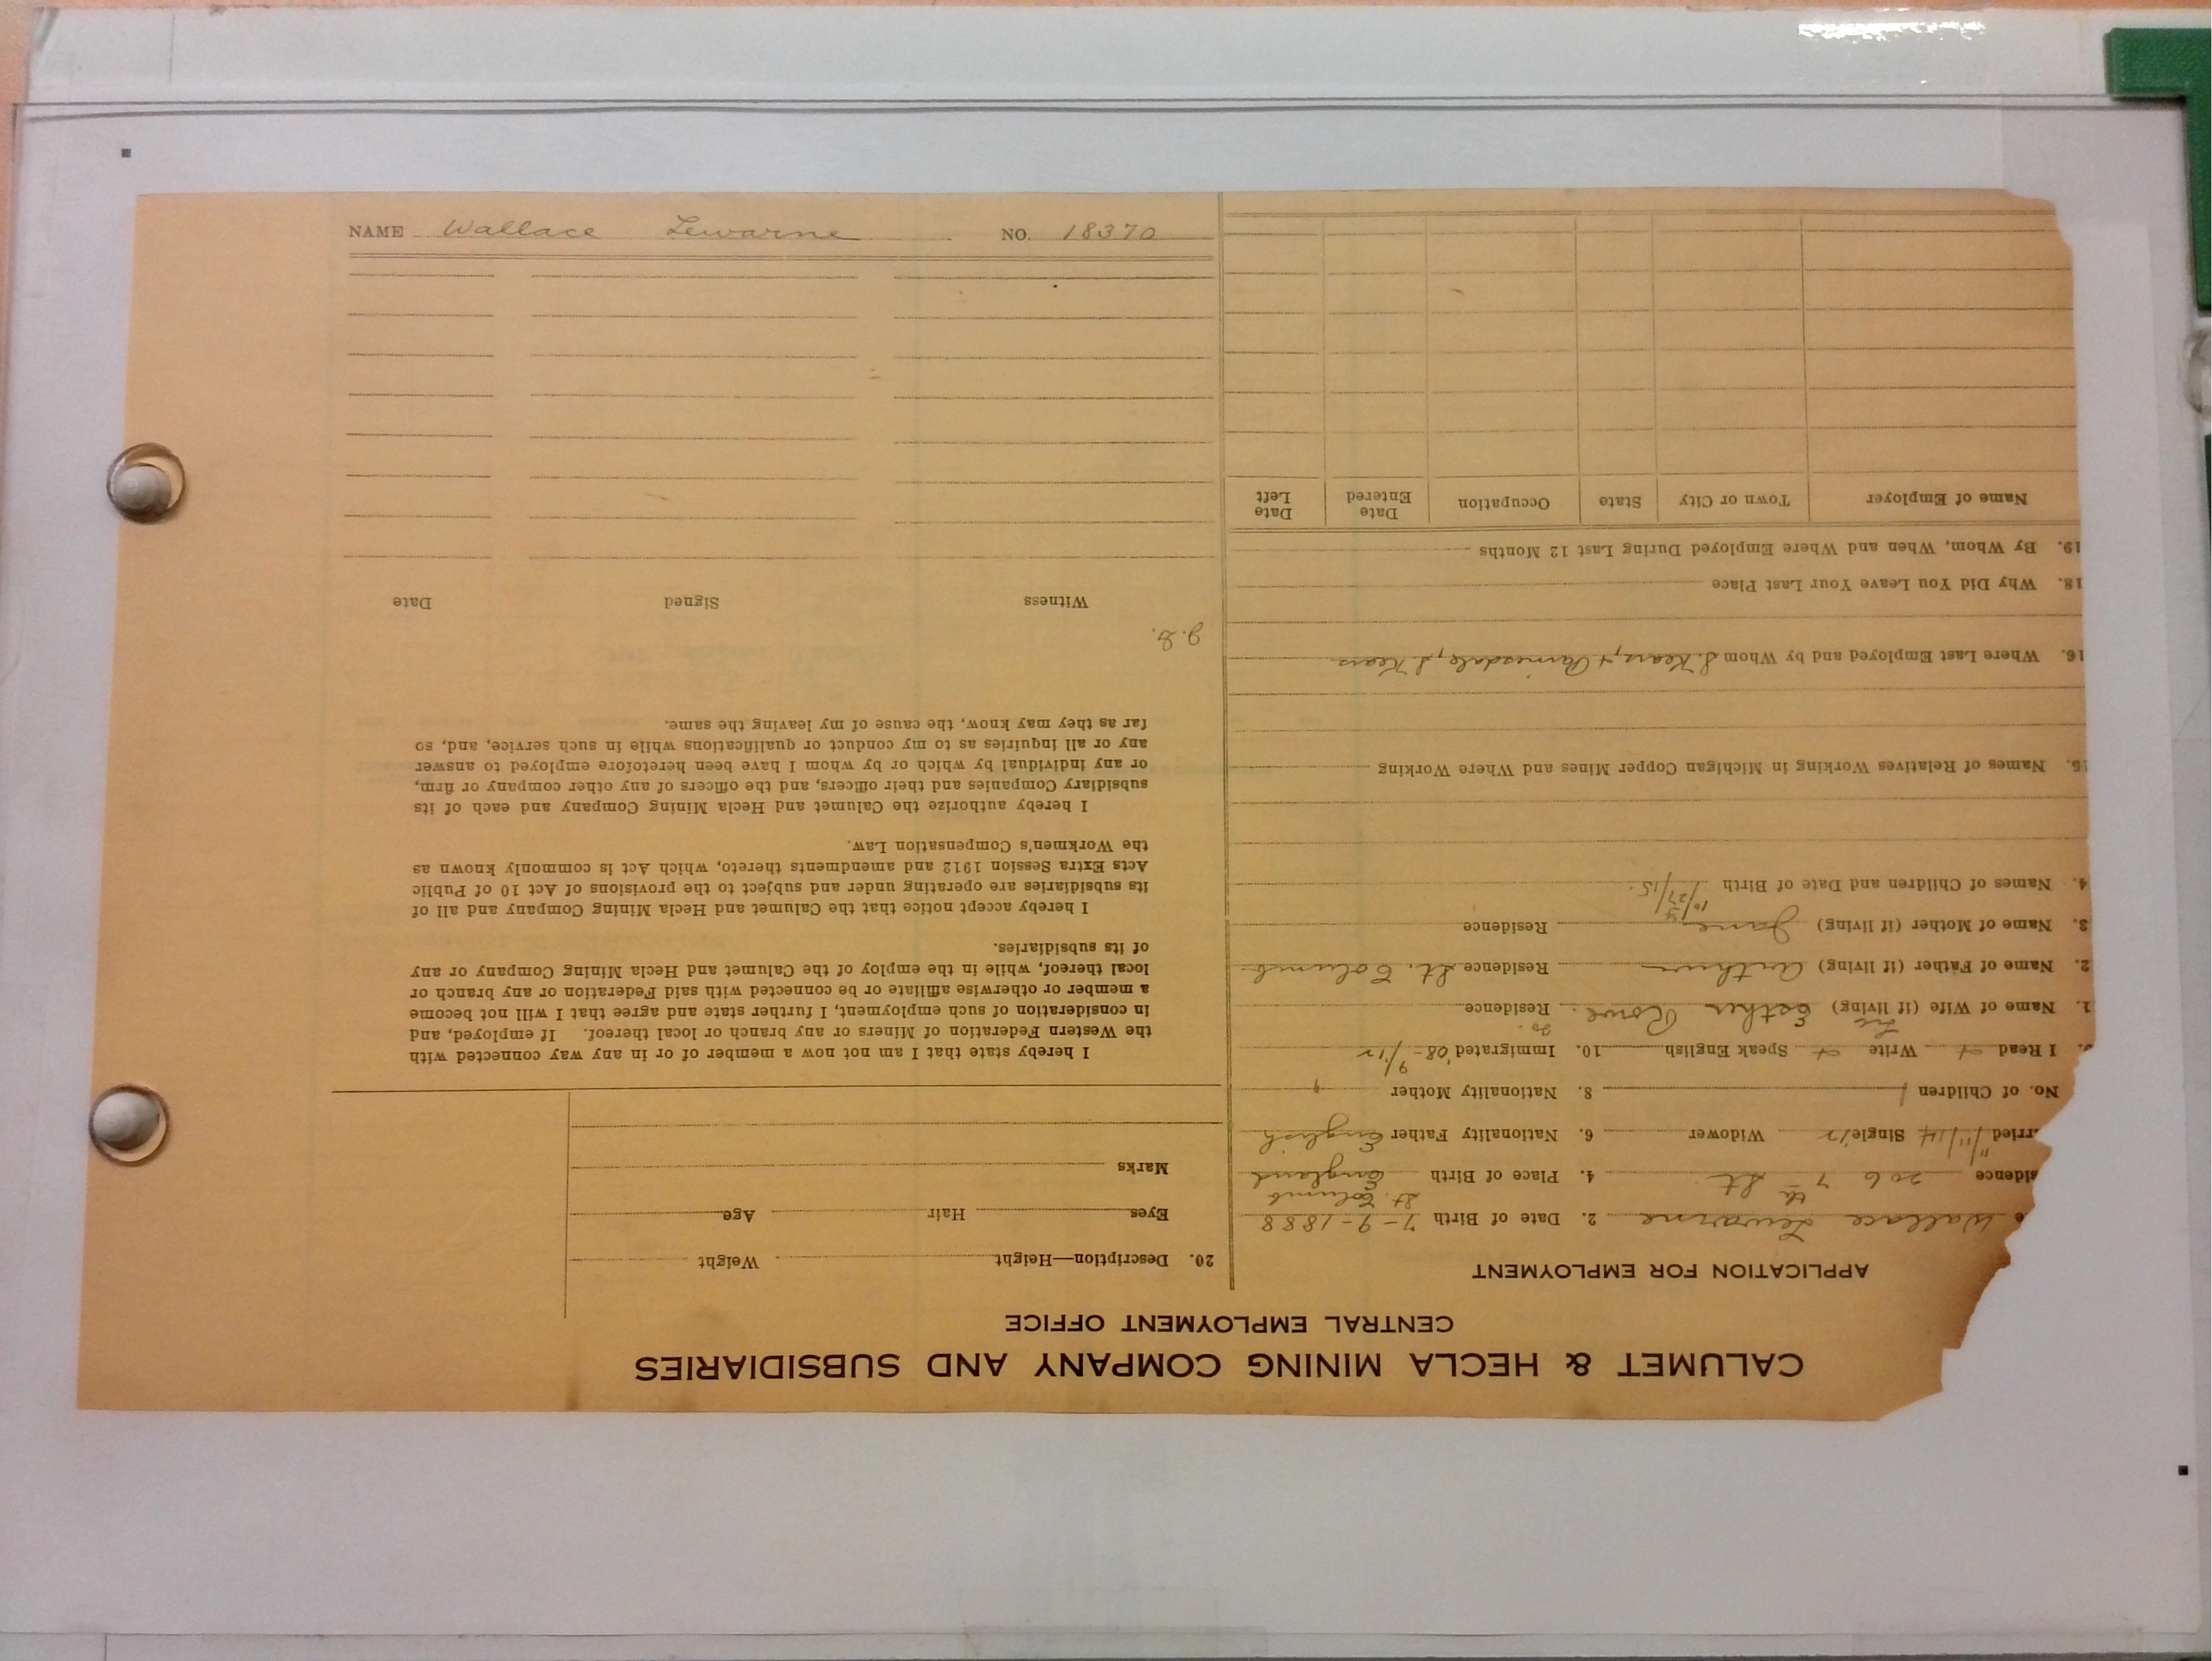 NAME Wallace Lewarne NO. 18370
CALUMET & HECLA MINING COMPANY AND SUBSIDIARIES
CENTRAL EMPLOYMENT OFFICE
APPLICATION FOR EMPLOYMENT
e Wallace Lewarne 2. Date of Birth 7-9-1888
St. Columb
sidence 206 7th St 4. Place of Birth England
rried 11/14 Single Widower 6. Nationality Father English
No. of Children 1 8. Nationality Mother "
I Read Write Speak English 10. Immigrated '08-
1. Name of Wife (if living) Esther Rowe. Residence
2. Name of Father (if living) Arthur Residence St. Columb
3. Name of Mother (if living) Jane Residence
4. Names of Children and Date of Birth 10/27/15.
15. Names of Relatives Working in Michigan Copper Mines and Where Working
16. Where Last Employed and by Whom
18. Why Did You Leave Your Last Place
19. By Whom, When and Where Employed During Last 12 Months
Name of Employer Town or City State Occupation Date Entered Date Left
20. Description—Height Weight
Eyes Hair Age
Marks
I hereby state that I am not now a member of or in any way connected with
the Western Federation of Miners or any branch or local thereof. If employed, and
in consideration of such employment, I further state and agree that I will not become
a member or otherwise affiliate or be connected with said Federation or any branch or
local thereof, while in the employ of the Calumet and Hecla Mining Company or any
of its subsidiaries.
I hereby accept notice that the Calumet and Hecla Mining Company and all of
its subsidiaries are operating under and subject to the provisions of Act 10 of Public
Acts Extra Session 1912 and amendments thereto, which Act is commonly known as
the Workmen's Compensation Law.
I hereby authorize the Calumet and Hecla Mining Company and each of its
subsidiary Companies and their officers, and the officers of any other company or firm,
or any individual by which or by whom I have been heretofore employed to answer
any or all inquiries as to my conduct or qualifications while in such service, and, so
far as they may know, the cause of my leaving the same.
Witness Signed Date